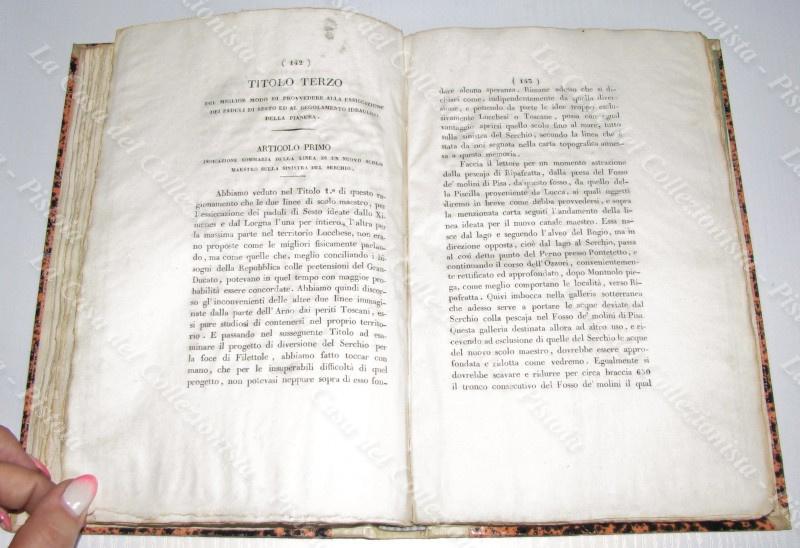 ( 142 )
TITOLO TERZO
DEL MIGLIOR MODO DI PROVVEDERE ALLA ESSICCAZIONE
DEI PADULI DI SESTO ED AL REGOLAMENTO IDRAULICO
DELLA PIANURA.
ARTICOLO PRIMO
INDICAZIONE SOMMARIA DELLA LINEA DI UN NUOVO SCOLO
MAESTRO SULLA SINISTRA DEL SERCHIO.
Abbiamo veduto nel Titolo 1.º di questo ra-
gionamento che le due linee di scolo maestro, per
l'essiccazione dei paduli di Sesto ideate dallo Xi-
menes e dal Lorgna l'una per intiero, l'altra per
la massima parte nel territorio Lucchese, non era-
no proposte come le migliori fisicamente parlan-
do, ma come quelle che, meglio conciliando i bi-
sogni della Repubblica colle pretensioni del Gran-
Ducato, potevano in quel tempo con maggior pro-
babilità essere concordate. Abbiamo quindi discor-
so gl'inconvenienti delle altre due linee immagi-
nate dalla parte dell'Arno dai periti Toscani, es-
si pure studiosi di contenersi nel proprio territo-
rio. E passando nel sossegnente Titolo ad esa-
minare il progetto di diversione del Serchio per
la foce di Filettole, abbiamo fatto toccar con
mano, che per le insuperabili difficoltà di quel
progetto, non potevasi neppure sopra di esso fon-
( 143 )
dare alcuna speranza. Rimane adesso che si di-
chiari come, indipendentemente da quella diver-
sione, e potendo da parte le idee troppo esclu-
sivamente Lucchesi o Toscane, possa con egual
vantaggio aprirsi quello scolo fino al mare, tutto
sulla sinistra del Serchio, secondo la linea che è
stata da noi segnata nella carta topografica annes-
sa a questa memoria.
Faccia il lettore per un momento astrazione
dalla pescaja di Ripafratta, dalla presa del Fosso
de' molini di Pisa, da questo fosso, da quello del-
la Piscilla proveniente da Lucca, ai quali oggetti
diremo in breve come debba provvedersi, e sopra
la menzionata carta seguiti l'andamento della li-
nea ideata per il nuovo canale maestro. Essa na-
sce dal lago e seguendo l'alveo del Rogio, ma in
direzione opposta, cioè dal lago al Serchio, passa
al così detto punto del Perno presso Pontetetto, e
continuando il corso dell'Ozzori, convenientemen-
te rettificato ed approfondato, dopo Montuolo pie-
ga, come meglio comportano le località, verso Ri-
pofratta. Quivi imbocca nella galleria sotterranea
che adesso serve a portare le acque deviate dal
Serchio colla pescaja nel Fosso de' molini di Pisa.
Questa galleria destinata allora ad altro uso, e ri-
cevendo ad esclusione di quelle del Serchio le acque
del nuovo scolo maestro, dovrebbe essere appro-
fondata e ridotta come vedremo. Egualmente si
dovrebbe scavare e ridurre per circa braccia 650
il tronco consecutivo del Fosso de' molini il qual
La Casa del Collezionista - Pistoia